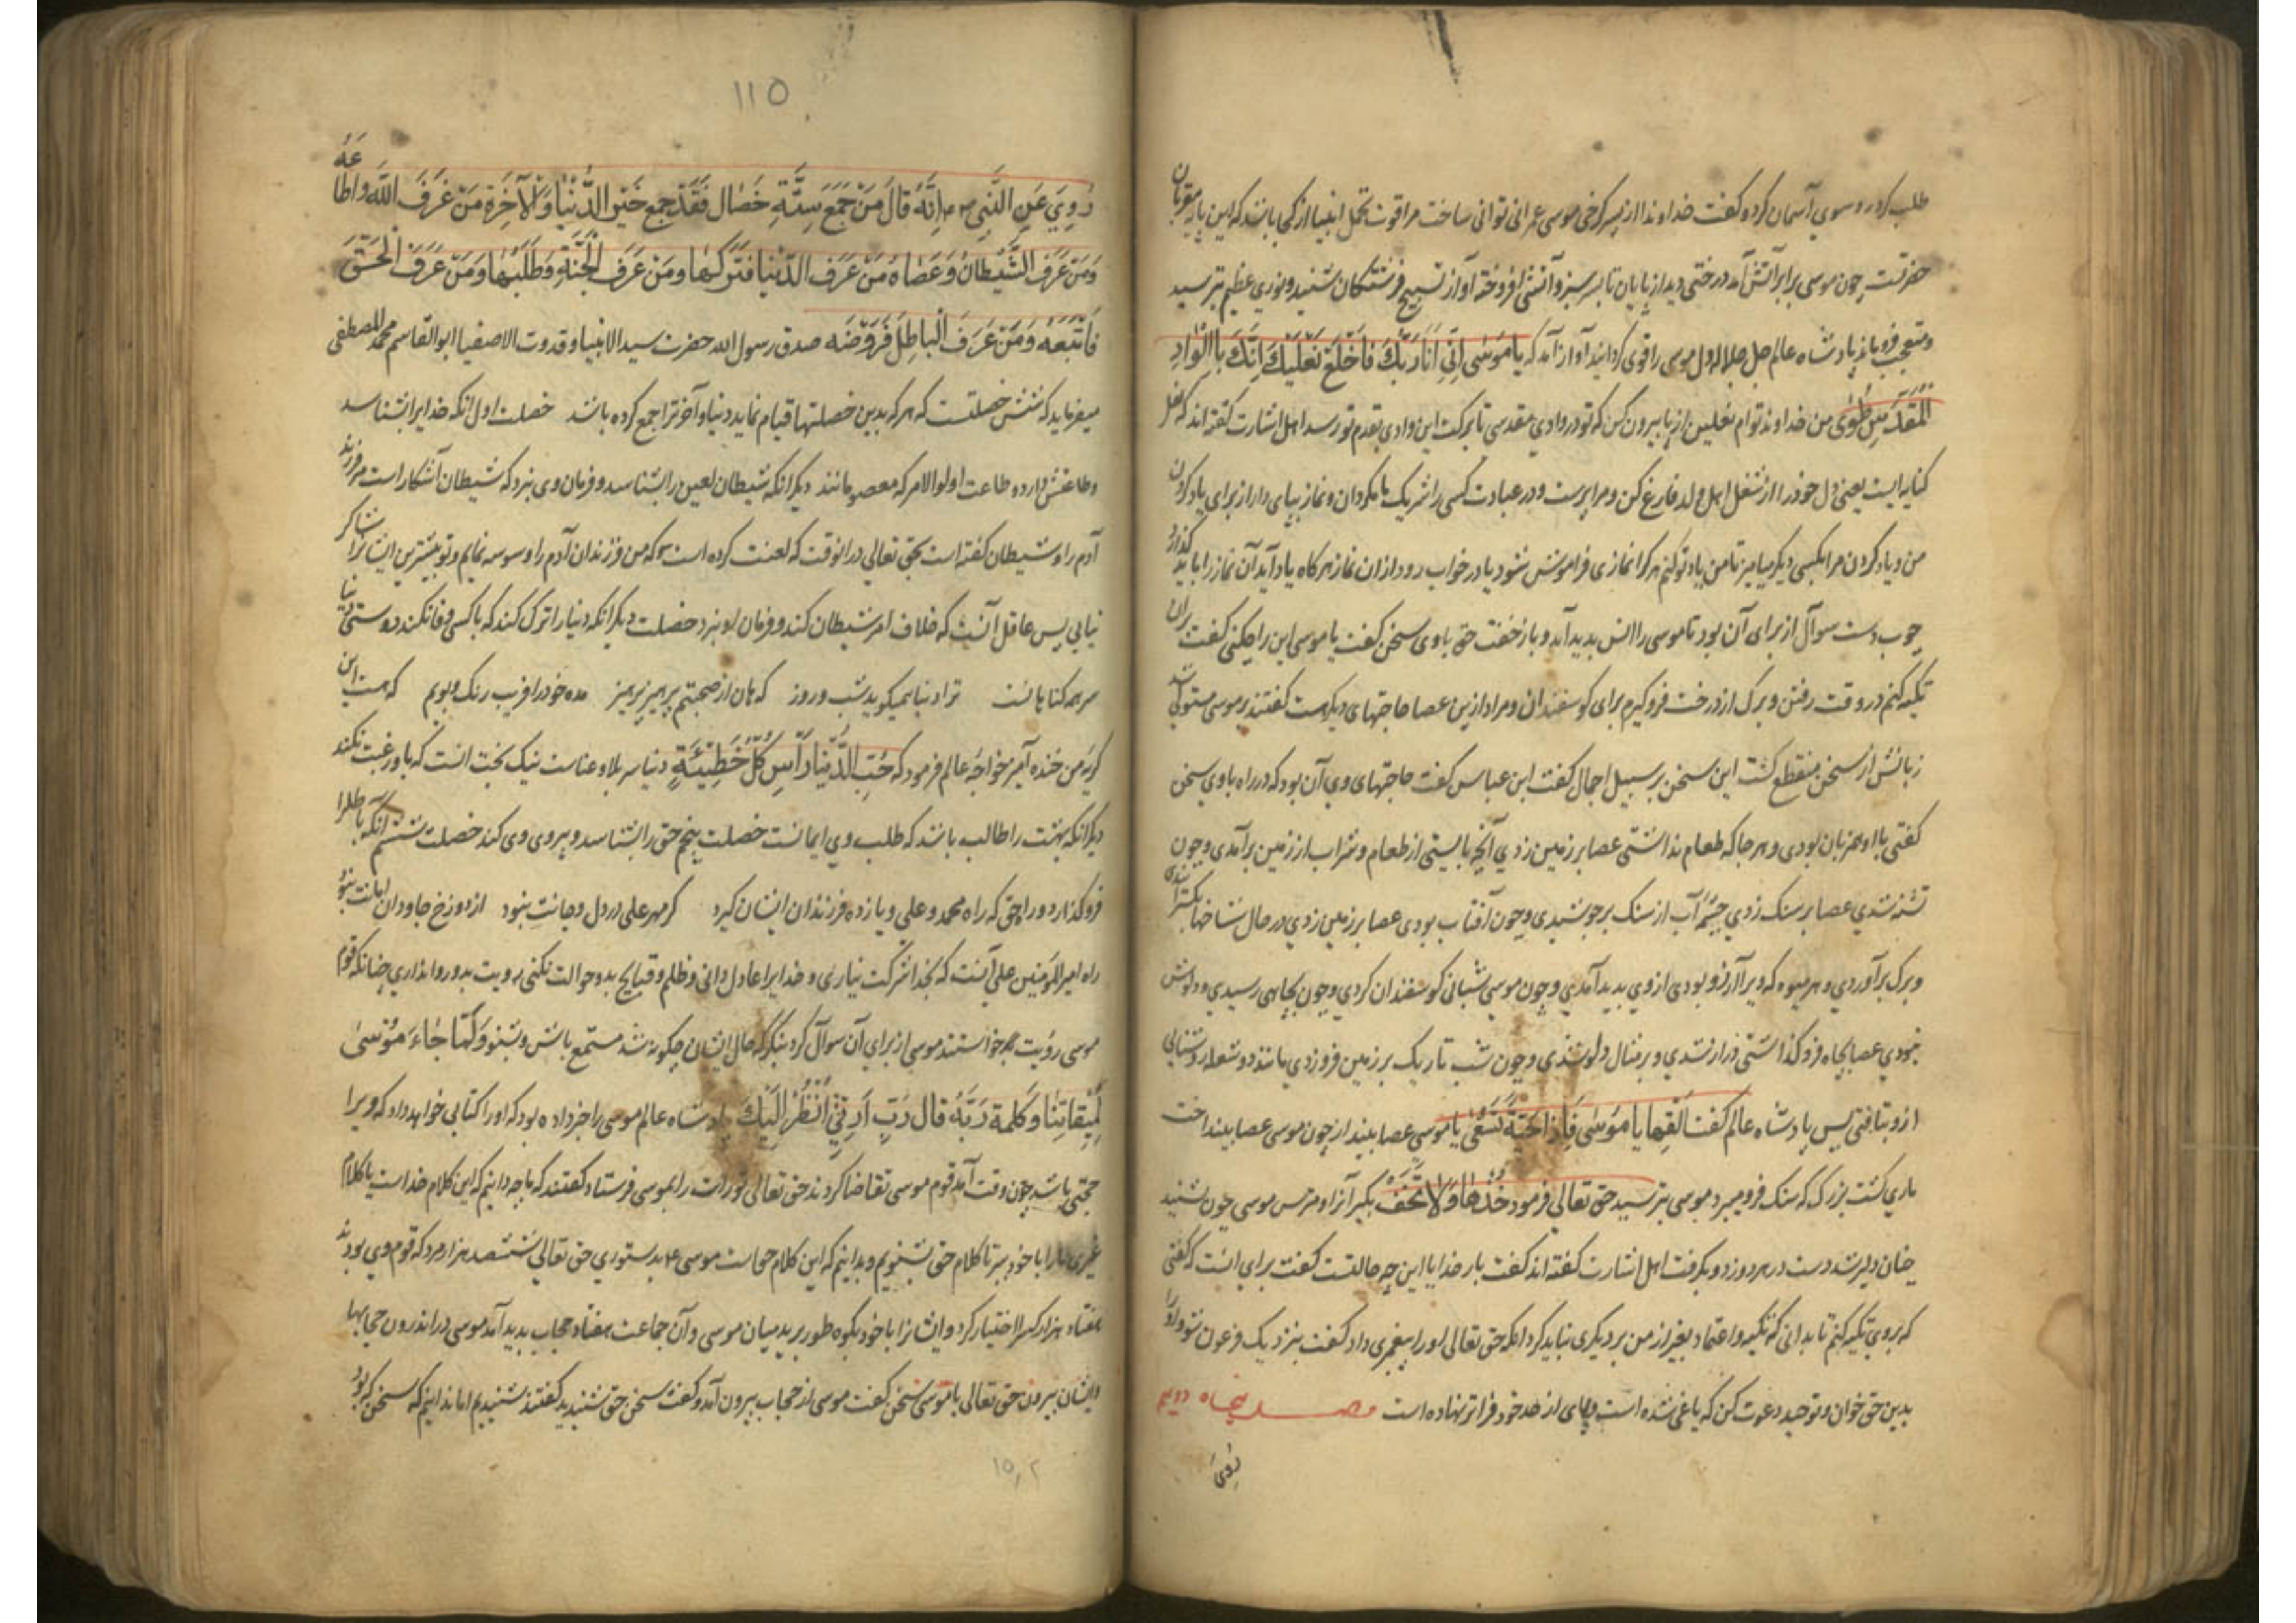 طلب کرد روسوی آسمان کرد و گفت خداوندا از پسر کرخی موسی عمرانی توانی ساخت مرا قوت تحمل انبیا از کجا باشد که این پایه مقربان
حضرتست چون موسی برابر آتش آمد درختی دید از پایان تا بسر سبز و آتشی افروخته آواز تسبیح فرشتگان شنید و نوری عظیم بترسید
و متعجب فروماند پادشاه عالم جل جلاله دل موسی را قوی کردانید آواز آمد که یا مُوسٰی اِنّی اَنَا رَبُّکَ فَاخْلَعْ نَعْلَیْکَ اِنَّکَ بِالْوادِ
الْمُقَدَّسِ طُوًی من خداوند توام نعلین از پا بیرون کن که تو در وادی مقدسی تا برکت این وادی بقدم تو رسد اهل اشارت گفته اند که نعل
کنایه است یعنی دل خود را از شغل اهل و ولد فارغ کن و مرا پرست و در عبادت کسی را شریک ما مگردان و نماز بپای دار از برای یاد کردن
من و یاد کردن مرا بکسی دیگر میامیز تا من یاد تو کنم هر کرا نمازی فراموش شود یا در خواب رود ازان نماز هرکاه یاد آید آن نماز را باید گذارد
چوب دست سوآل از برای آن بود تا موسی را انس بدید آمد و باز خفت حق با وی سخن گفت یا موسی این را چکنی گفت بران
تکیه کنم در وقت رفتن و برک از درخت فروگیرم برای گوسفندان و مرا ازین عصا حاجتهای دیگر هست گفتند بر موسی مستولی شد
زبانش از سخن منقطع گشت این سخن بر سبیل اجمال گفت ابن عباس گفت حاجتهای وی آن بود که در راه با وی سخن
گفتی با او همزبان بودی و هر جا که طعام نداشتی عصا بر زمین زدی آنچه بایستی از طعام و شراب از زمین برآمدی و چون
تشنه شدی عصا بر سنک زدی چشمه آب از سنک برجوشیدی و چون آفتاب بودی عصا بر زمین زدی در حال شاخها بکسترانیدی
و برک برآوردی و هر میوه که ویرا آرزو بودی از وی بدید آمدی و چون موسی شبانی گوسفندان کردی و چون بچاهی رسیدی و دلوش
نبودی عصا بچاه فروگذاشتی دراز شدی و بر مثال دلو شدی و چون شب تاریک بر زمین فرو زدی مانند دو شعله روشنایی
ازو بتافتی پس پادشاه عالم گفت اَلْقِها یا مُوسٰی فَاِذا حَیَّةٌ تَسْعٰی یا موسی عصا بینداز چون موسی عصا بینداخت
ماری کشت بزرک که سنک فرو میبرد موسی بترسید حق تعالی فرمود خُذْها وَلا تَخَفْ بگیر آنرا و مترس موسی چون شنید
چنان دلیر شد دست در مر دوزد و بگرفت اهل اشارت گفته اند گفت بار خدایا این چه حالتست گفت برای انست که گفتی
که بروی تکیه کنم تا بدانی که تکیه و اعتماد بغیر از من بر دیگری نباید کرد انکه حق تعالی او را پیغمبری داد گفت بنزدیک فرعون شو و او را
بدین حق خوان و توحید دعوت کن که یاغی شده است و پای از حد خود فراتر نهاده است فصل پنجاه دویم
رُوِیَ
١١٥
رُوِیَ عَنِ النَّبِیِّ ص م اِنَّهُ قالَ مَنْ جَمَعَ سِتَّةَ خِصٰالٍ فَقَدْ جَمَعَ خَیْرَ الدُّنْیٰا وَالْآخِرَةِ مَنْ عَرَفَ اللّٰهَ وَاَطاعَهُ
وَمَنْ عَرَفَ الشَّیْطٰانَ وَعَصٰاهُ مَنْ عَرَفَ الدُّنْیٰا فَتَرَکَهٰا وَمَنْ عَرَفَ الْجَنَّةِ وَطَلَبَهٰا وَمَنْ عَرَفَ الْحَقَّ
فَاتَّبَعَهُ وَمَنْ عَرَفَ الْباطِلَ فَرَفَضَهُ صدق رسول الله حضرت سید الانبیا و قدوت الاصفیا ابوالقاسم محمد المصطفی
میفرماید که شش خصلتست که هر که بدین خصلتها قیام نماید دنیا و آخرترا جمع کرده باشد خصلت اول انکه خدایرا بشناسد
وطاعتش دارد و طاعت اولوالامر که معصومانند دیگر انکه شیطان لعین را بشناسد و فرمان وی نبرد که شیطان آشکار است مر فرزند
آدم را و شیطان گفته است بحق تعالی در انوقت که لعنت کرده است که من فرزندان آدم را وسوسه نمایم و تو بیشترین ایشانرا شاکر
نیابی پس عاقل آنست که خلاف امر شیطان کند و فرمان او نبرد خصلت دیگر انکه دنیا را ترک کند که با کسی وفا نکند دوستی دنیا
سر همه کناهانست ترا دنیا همیکوید شب و روز که هان از صحبتم پرهیز پرهیز مده خود را فریب رنک و بویم که هست این
گریه من خنده آمیز خواجه عالم فرمود که حُبِّ الدُّنْیٰا رَأسِ کُلِّ خَطِیئَةٍ دنیا سر بلا و عناست نیک بخت انست که باو رغبت نکند
دیگر انکه بهشت را طالب باشد که طلب وی ایمانست خصلت پنجم حق را بشناسد و پیروی وی کند خصلت ششم آنکه باطلرا
فروگذارد و راه حق که راه محمد و علی و یازده فرزندان ایشان گیرد گر مهر علی در دل و جانت نبود از دوزخ جاودان امانت نبود
راه امیرالمؤمنین علی آنست که بخدا شرکت نیاری و خدایرا عادل دانی و ظلم و قبایح بدو حوالت نکنی رویت بدو روا نداری چنانکه قوم
موسی رؤیت خواستند موسی از برای آن سوآل کرد بنگر که حال ایشان چگونه شد مستمع باش و بشنو وَلَمّا جٰاءَ مُوسٰی
لِمیقاتِنٰا وَکَلَّمَهُ رَبَّهُ قالَ رَبِّ اَرِنِی اَنْظُرْ اِلَیْکَ پادشاه عالم موسی را خبر داده بود که او را کتابی خواهد داد که ویرا
حجتی باشد چون وقت آمد قوم موسی تقاضا کردند حق تعالی تورات را بموسی فرستاد گفتند که ما چه دانیم که این کلام خداست یا کلام
غیری مارا با خود ببر تا کلام حق بشنویم و بدانیم که این کلام حقاست موسی ع بدستوری حق تعالی ششصد هزار مرد که قوم وی بودند
هفتاد هزار کسرا اختیار کرد و ایشانرا با خود بکوه طور برید میان موسی و آن جماعت هفتاد حجاب بدید آمد موسی در اندرون حجابها
و ایشان بیرون حق تعالی با موسی سخن گفت موسی از حجاب بیرون آمد و گفت سخن حق شنیدید گفتند شنیدیم اما ندانیم که سخن که بود